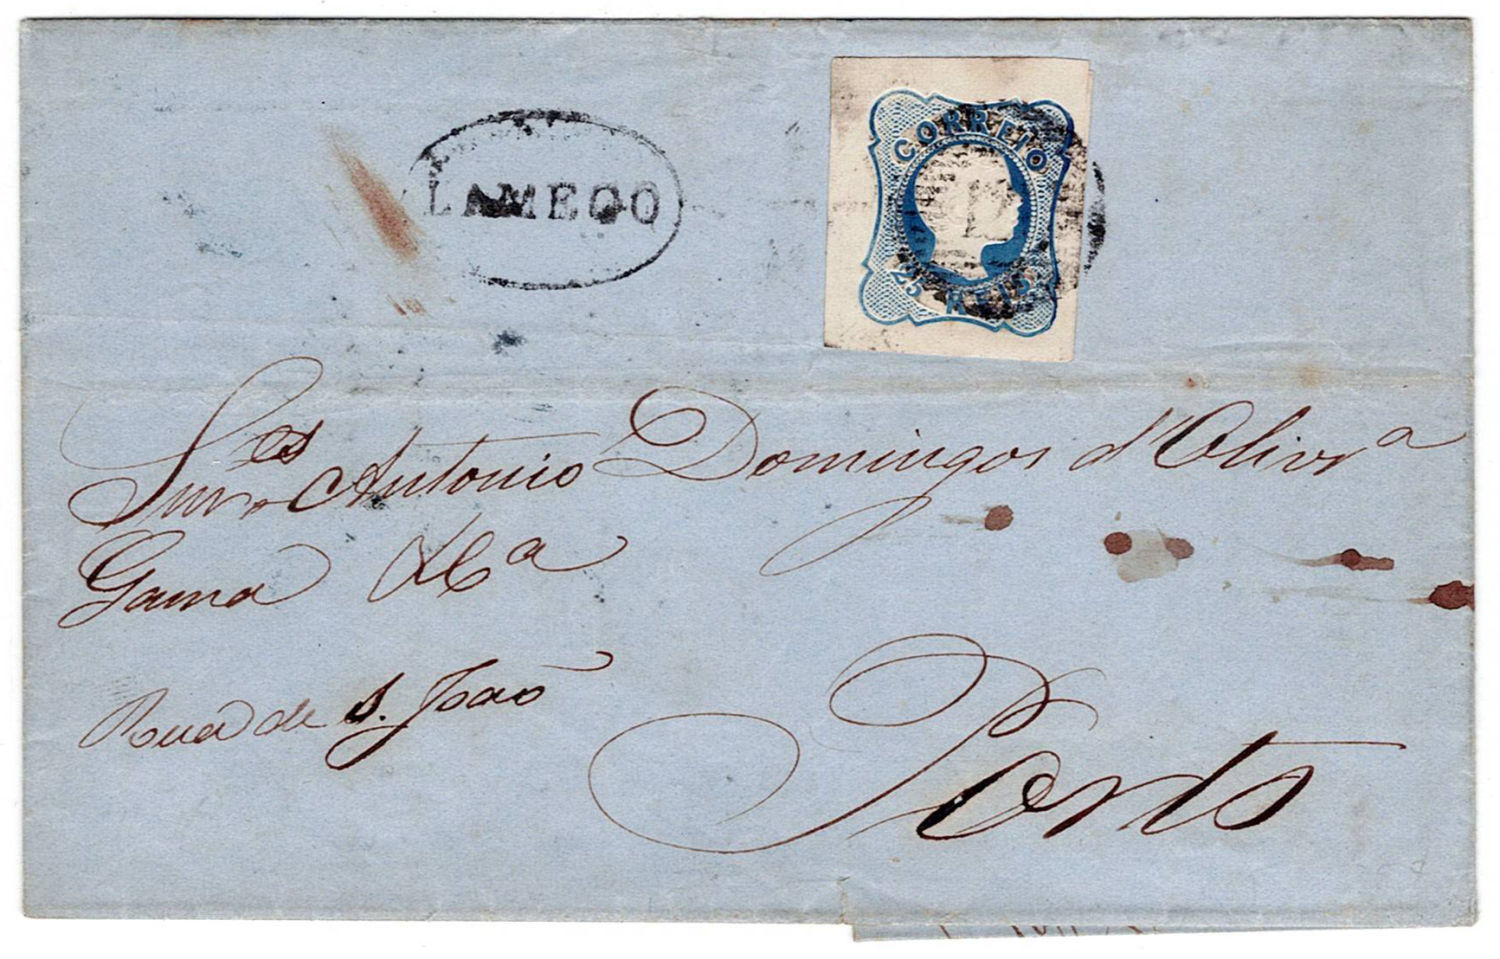 LAMEGO
CORREIO
25 REIS
Snres Antonio Domingos d'Olivra
Gama & Ca
Rua de S. João
Porto